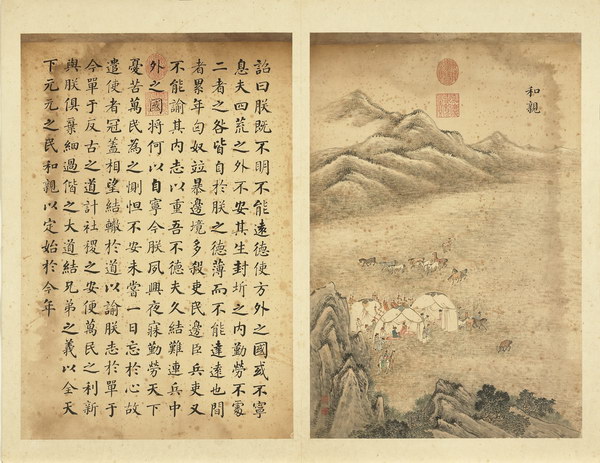 和親
詔曰朕既不明不能遠德使方外之國或不寧
息夫四荒之外不安其生封圻之內勤勞不處
二者之咎皆自於朕之德薄而不能達遠也間
者累年匈奴竝暴邊境多殺吏民邊臣兵吏又
不能諭其內志以重吾不德夫久結難連兵中
外之國將何以自寧今朕夙興夜寐勤勞天下
憂苦萬民為之惻怛不安未嘗一日忘於心故
遣使者冠蓋相望結轍於道以諭朕志於單于
今單于反古之道計社稷之安便萬民之利新
與朕俱棄細過偕之大道結兄弟之義以全天
下元元之民和親以定始於今年